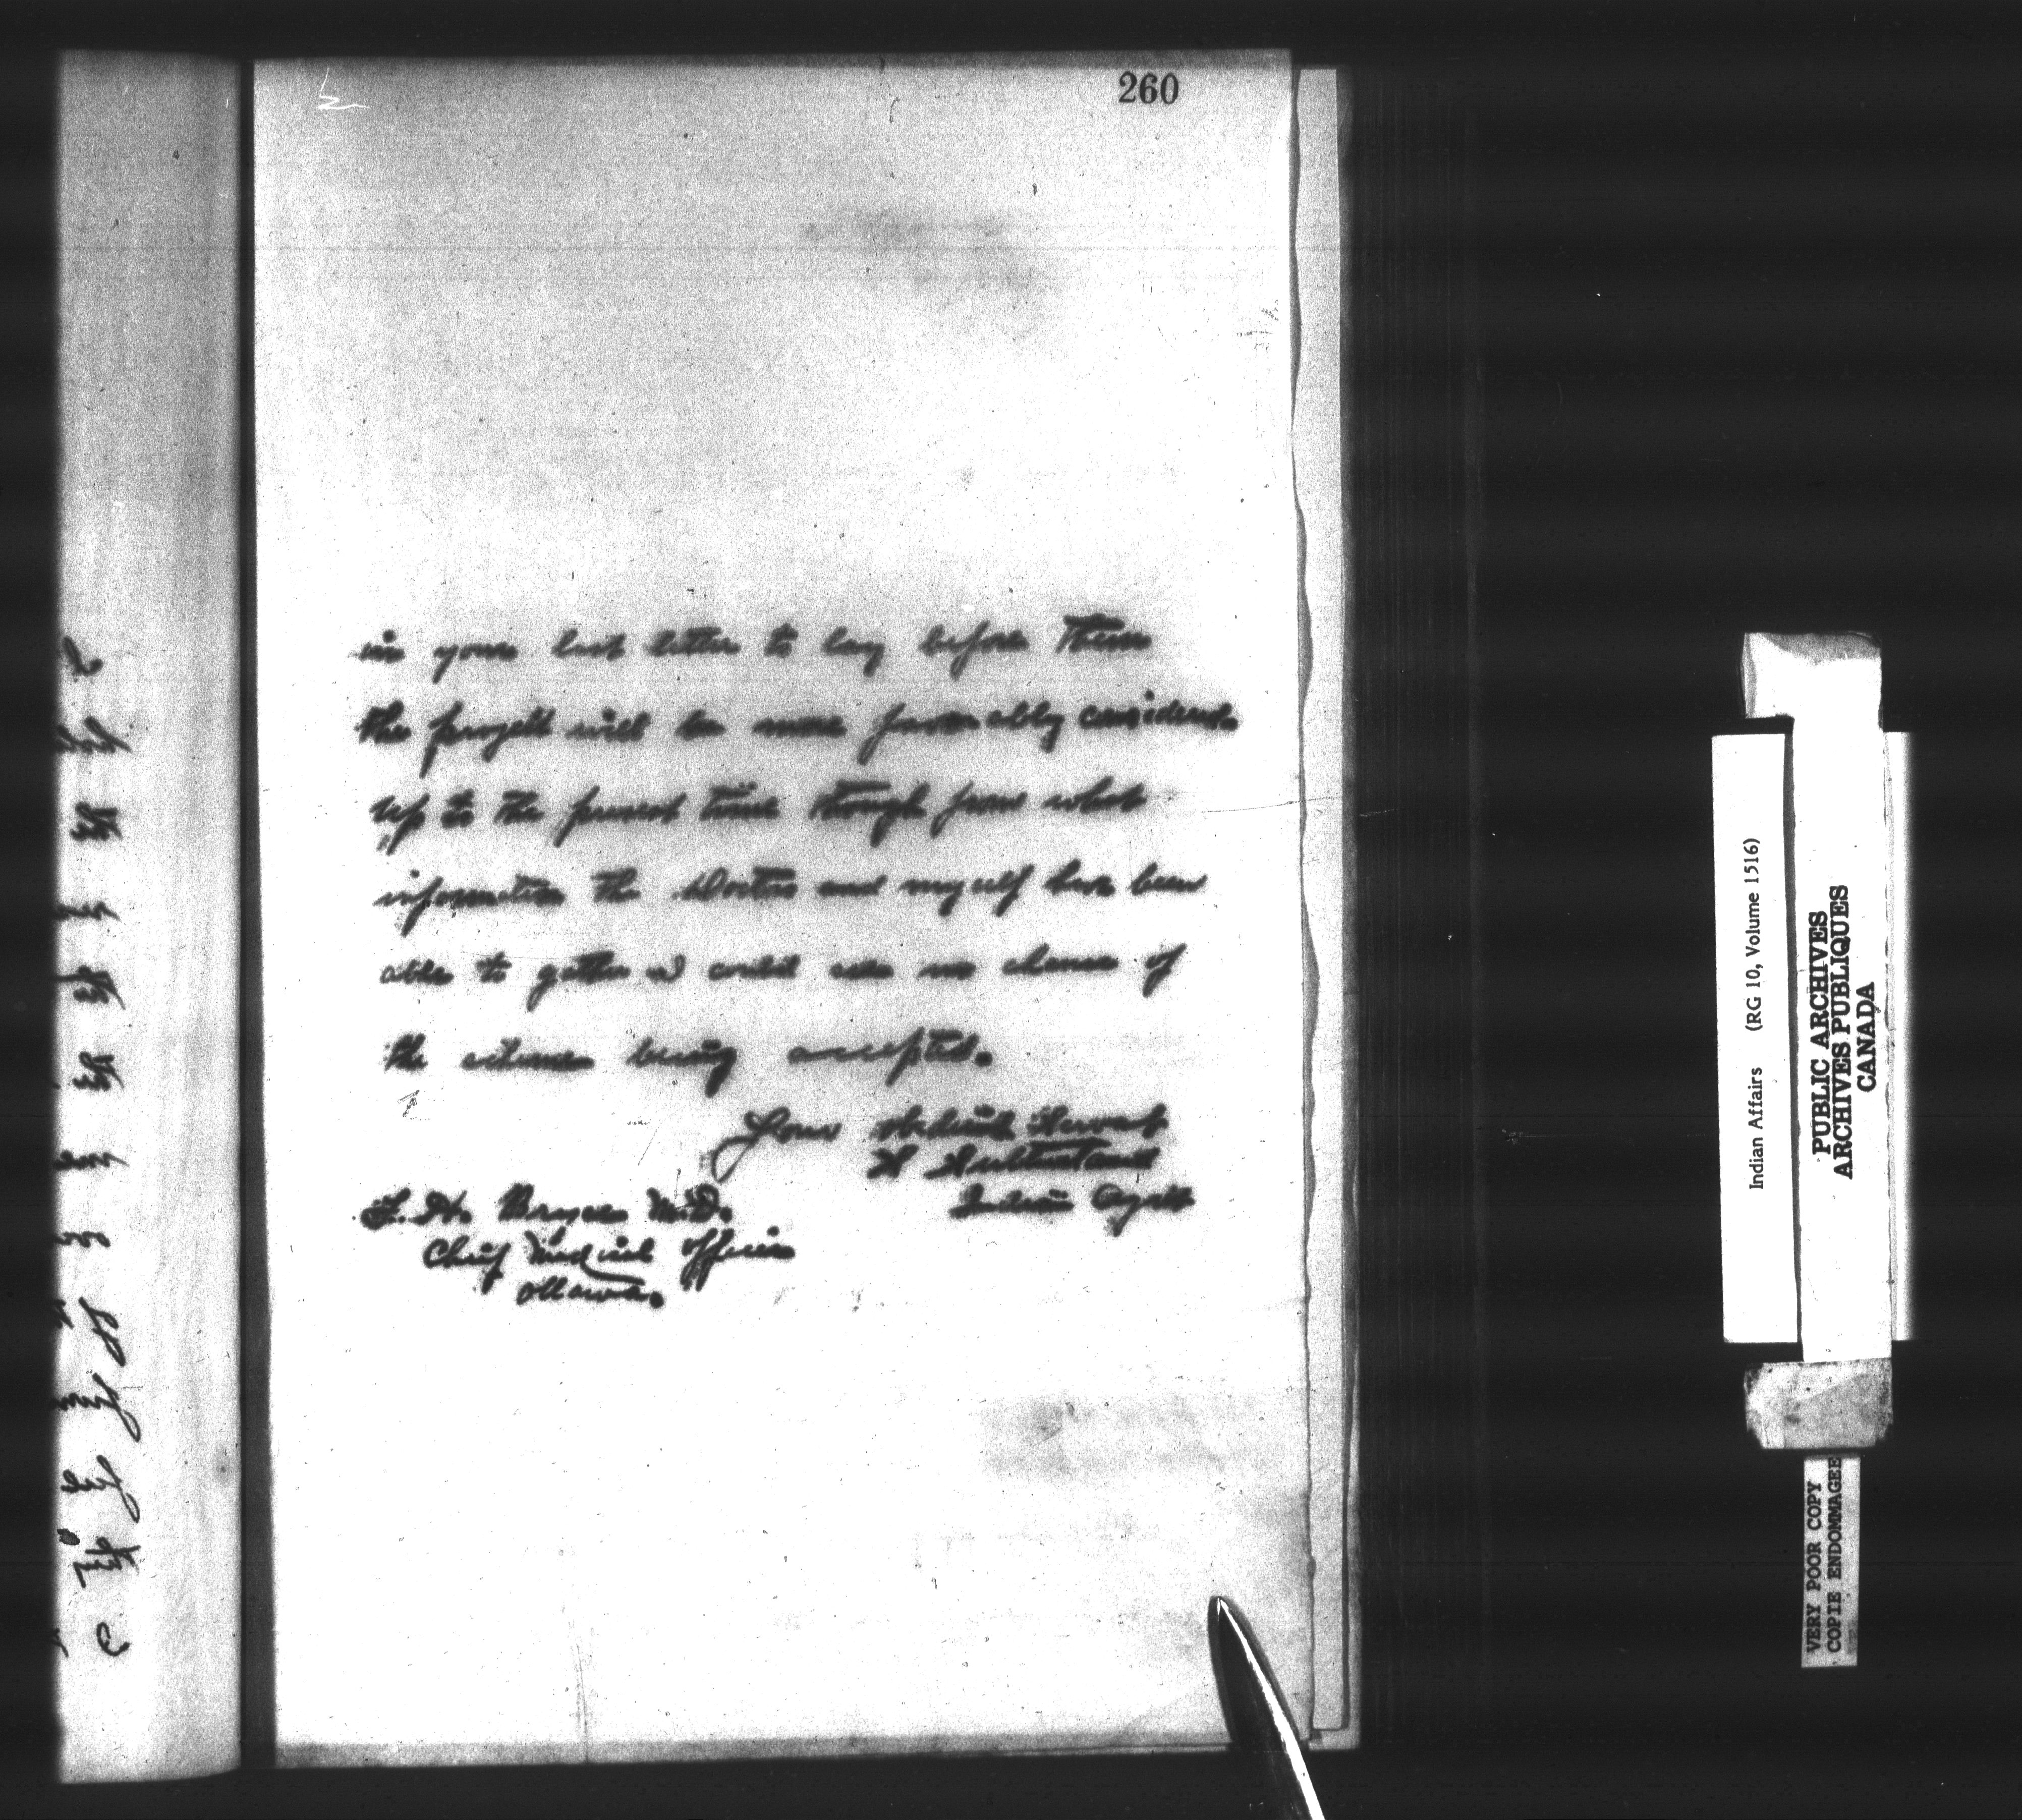 260
in your last letter to lay before them
the projett will be more favorably considered.
up to the present time though from what
information the Doctor and myself have been
able to gather we could see no chance of
the scheme being accepted.
Your Obedient Servant
Indian Agent
P. H. Bryce M.D.
Chief Medical Officer
Ottawa.
Indian Affairs (RG 10, Volume 1516)
PUBLIC ARCHIVES
ARCHIVES PUBLIQUES
CANADA
VERY POOR COPY
COPIE ENDOMMAGEE